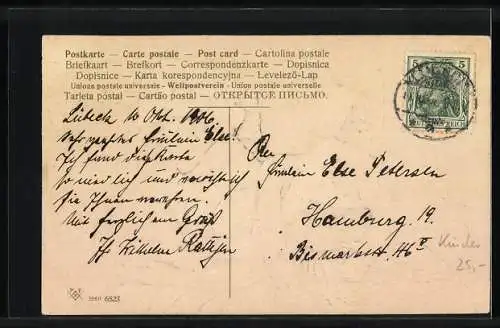 Postkarte — Carte postale — Post card — Cartolina postale
Briefkaart — Brefkort — Correspondenzkarte — Dopisnica
Dopisnice — Karta korespondencyjna — Levelező-Lap
Unione postale universale - Weltpostverein - Union postale universelle
Tarjeta postal — Cartão postal — ОТКРЫТСЕ ПИСЬМО.
5 5
Lübeck 10 Okt. 1906.
Sehr geehrtes Fräulein Else!
Ich fand die Karte
so nied lich und
sie Ihnen
Mit herzlichem Gruß
Ihr Wilhelm
An
Fräulein Else Petersen
Hamburg. 19.
Bismarkstr. 46 II
Kinder
25,-
6525